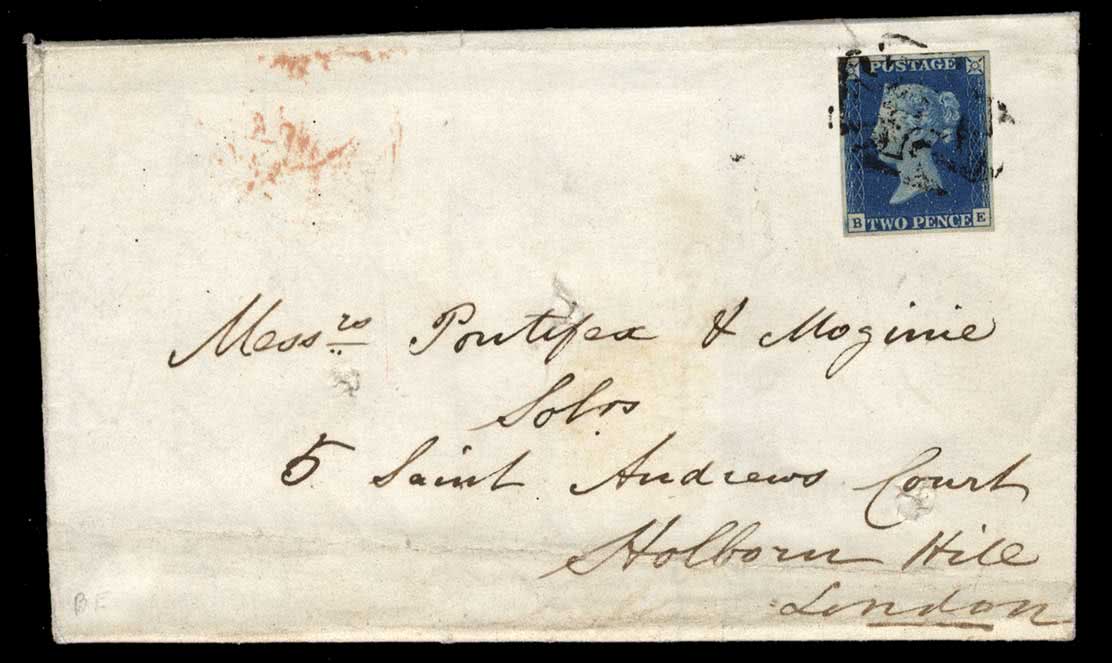 POSTAGE
B TWO PENCE E
Messrs Pontifex & Moginie
Solrs
5 Saint Andrews Court
Holborn Hill
London
B E